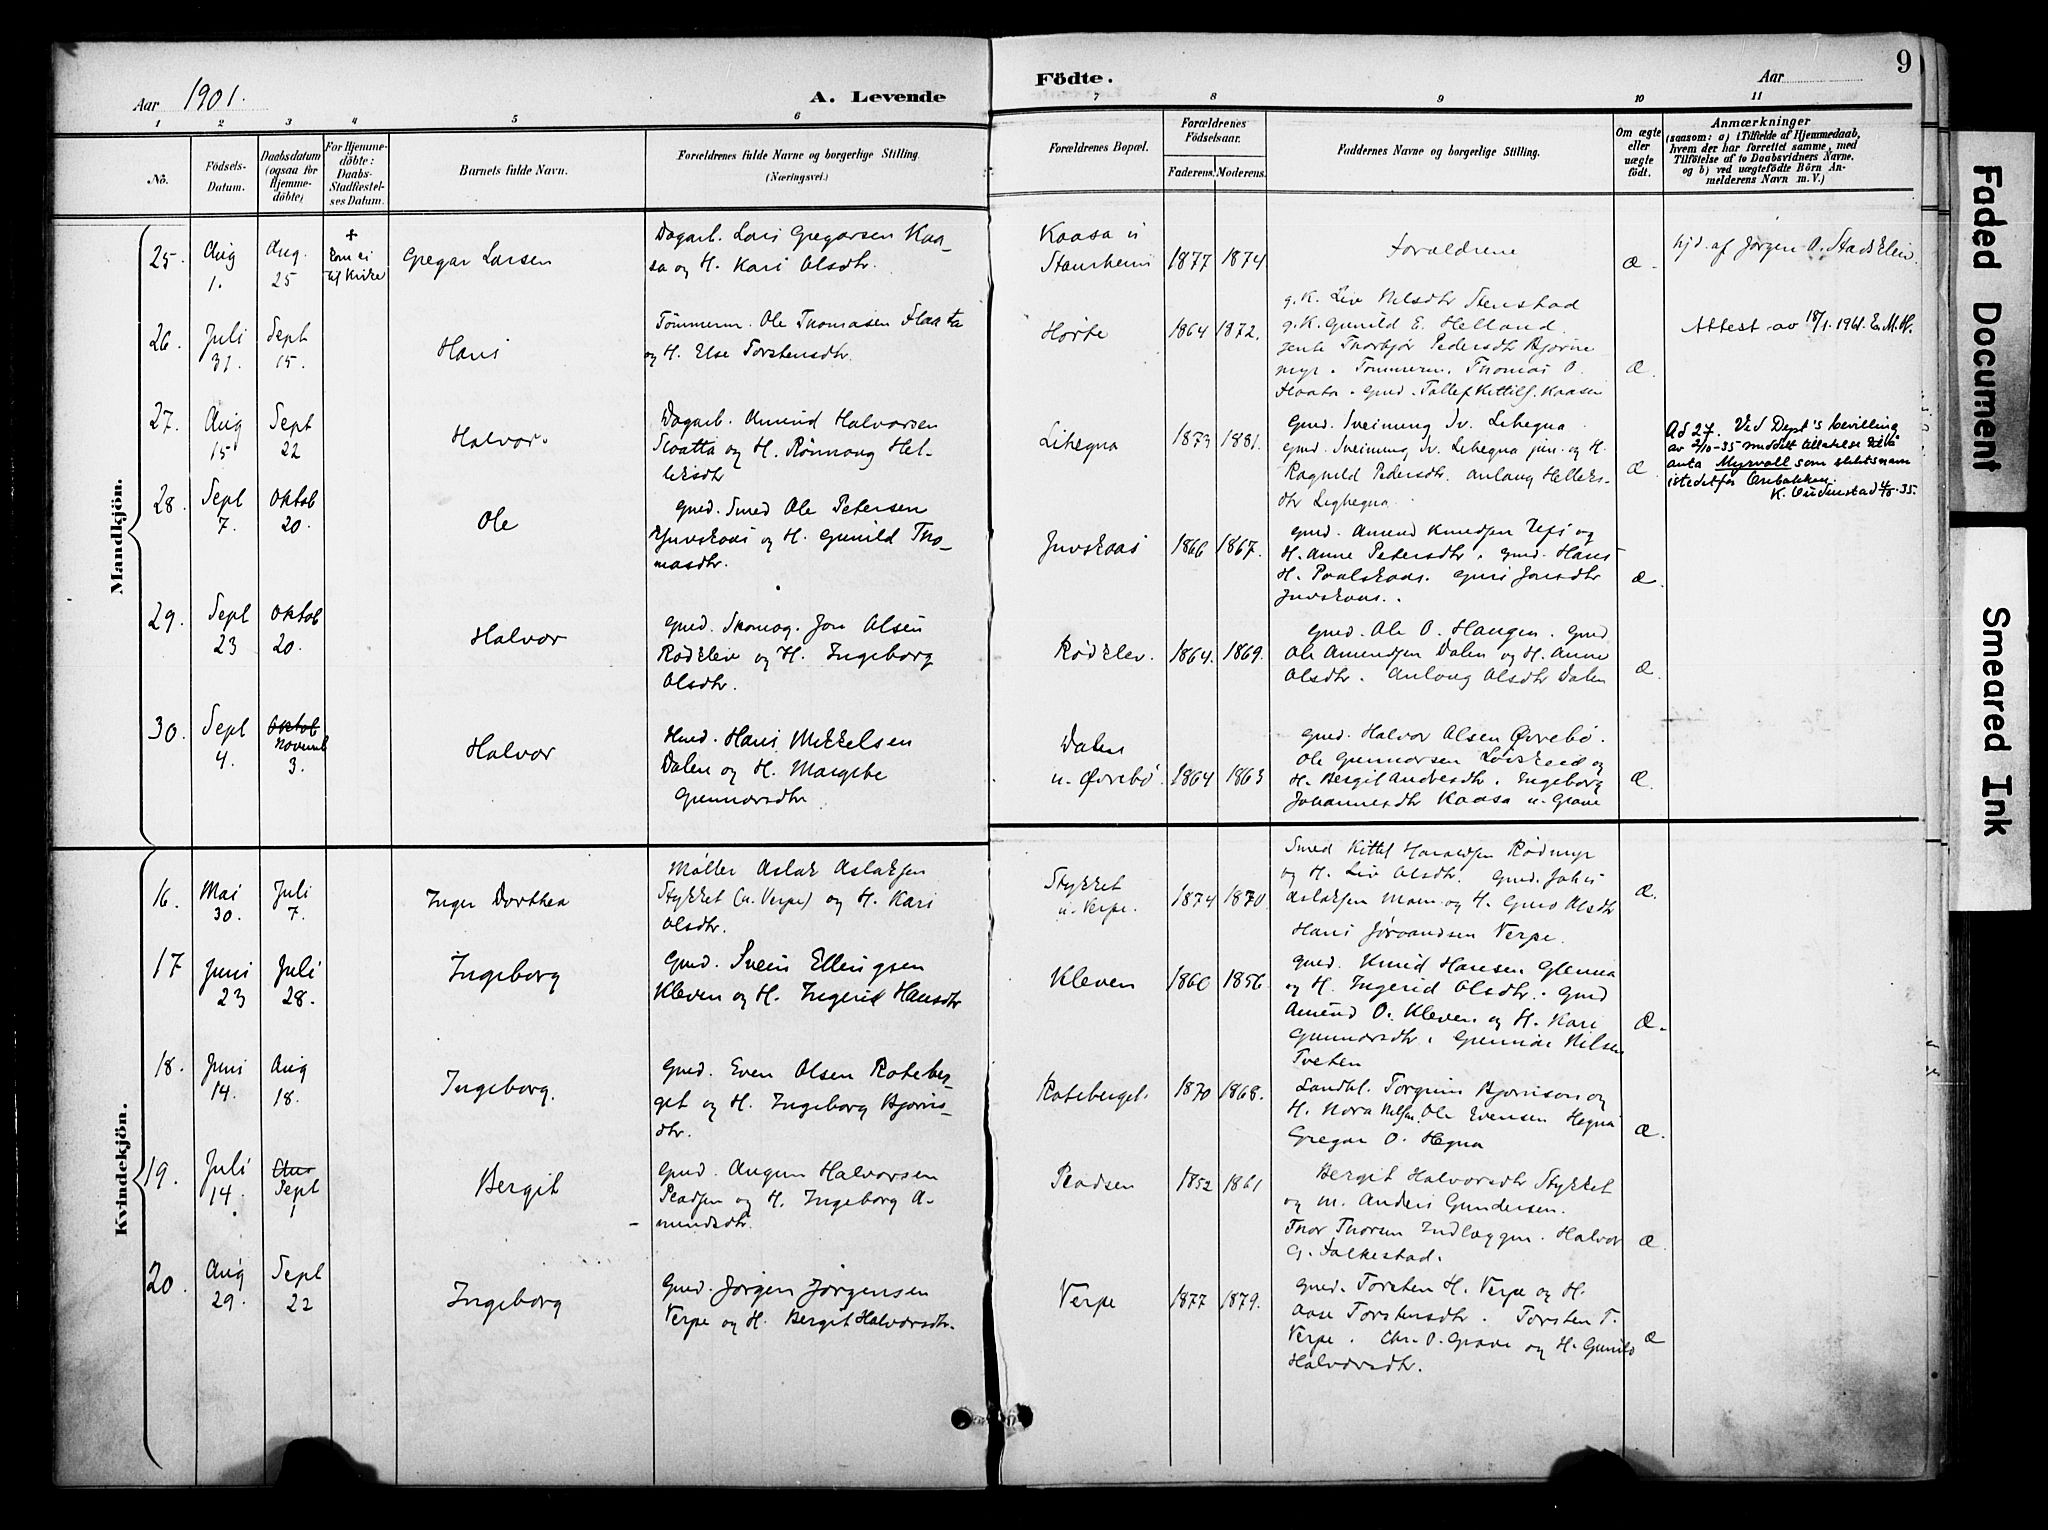 Aar 1901.
A. Levende
Födte.
Aar
9
1 2 3 4 5 6 7 8 9 10 11
No.
Födsels-
Datum.
Daabsdatum
(ogsaa for
Hjemme-
döbte)
For Hjemme-
döbte:
Daabs-
Stadfæstel-
ses Datum.
Barnets fulde Navn.
Forældrenes fulde Navne og borgerlige Stilling.
(Næringsvei.)
Forældrenes Bopæl.
Forældrenes
Födselsaar.
Faderens. Moderens.
Faddernes Navne og borgerlige Stilling.
Om ægte
eller
uægte
födt.
Anmærkninger
(saasom: a) i Tilfælde af Hjemmedaab,
hvem der har forrettet samme, med
Tilföielse af to Daabsvidners Navne.
og b) ved uægtefödte Börn An-
melderens Navn m. V.)
Mandkjön.
25. Aug 1. Aug. 25
+
Kom ei
til Kirke
Gregar Larsen
Dagarb. Lars Gregarsen Kaa-
sa og H. Kari Olsdtr.
Kaasa u
1877 1874
Forældrene
Æ.
hjd. af Jørgen O.
26. Juli 31. Sept 15.
Hans
Tømmerm. Ole Thomasen Flaata
og H. Else Torstensdtr.
Hørte
1864 1872.
g.K. Liv Nilsdtr Stenstad
g.K. Gunild E. Helland.
gente Thorbjør Pedersdtr Bjørne
myr. Tømmerm. Thomas O.
Flaata. Gmd. Tallef Kittilf. Kaasen
Æ.
Attest av 18/1. 1961. E.M.H.
27. Aug 15. Sept 22
Halvor.
Dagarb. Amund Halvorsen
og H. Rønnaug Hel-
leksdtr
Lihegna
1873 1881.
Gmd. Sveinung Sv. Lihegna
gmd. Sveinung Sv. Lihegna jun. og H.
Ragnild Pedersdtr. Anlaug Helleks-
dtr Lighegna.
Æ.
Ad 27. Ved Dept's bevilling
av 2/10-35 meddelt tillatelse til å
anta Myrvoll som slektsnavn
istedetfor
K. 4/11.35.
28. Sept 7. Oktob 20.
Ole
gmd. Smed Ole Petersen
Juvskaas og H. Gunild Tho-
masdtr.
Juvskaas
1866 1867.
gmd. Amund Knudsen og
H. Anne Petersdtr. gmd. Hans
H. Paalskaas. Guri Jonsdtr
Juvskaas.
Æ.
29. Sept 23 Oktob 20.
Halvor
gmd. Skomag. Jon Olsen
Rødklev og H. Ingeborg
Olsdtr.
Rødklev.
1864. 1869.
gmd. Ole O. Haugen. gmd
Ole Amundsen Dalen og H. Anne
Olsdtr. Anlaug Olsdtr Dalen
Æ.
30. Sept 4. Oktob
Novemb
3.
Halvor
Hmd. Hans Mikkelsen
Dalen og H. Margite
Gunnarsdtr
Dalen
u. Øvrebø
1864 1863
gmd. Halvor Olsen Øvrebø.
Ole Gunnarsen og
H. Bergit Andresdtr. Ingeborg
Johannesdtr Kaasa u. Grave
Æ.
Kvindekjön.
16. Mai 30. Juli 7.
Inger Dorthea
Møller Aslak Aslaksen
Stykket (u. Verpe) og H. Kari
Olsdtr.
Stykket
u. Verpe.
1874 1870.
Smed Kittil Haraldsen Rødmyr
og H. Liv Olsdtr. Gmd. Johs
Aslaksen Moen og H. Guro Olsdtr
Hans Jørandsen Verpe.
Æ.
17 Juni 23 Juli 28.
Ingeborg
Gmd. Svein Ellingsen
Kleven og H. Ingerid Hansdtr
Kleven
1860 1856.
gmd. Knud Hansen Glenna
og H. Ingerid Olsdtr. Gmd
Amund O. Kleven og H. Kari
Gunnarsdtr. Gunnar Nilsen
Tveten
Æ.
18. Juni 14. Aug 18.
Ingeborg.
Gmd. Even Olsen Roteber-
get og H. Ingeborg Bjørns-
dtr.
Roteberget.
1870 1868.
Landhl. Torgrim Bjørnson og
H. Nora Nilsen. Ole Evensen Hegna
Gregar O. Hegna
Æ.
19. Juli 14. Aug
Sept
1
Bergit
gmd. Augun Halvorsen
og H. Ingeborg A-
mundsdtr.
1852 1861
Bergit Halvorsdtr Stykket
og m. Anders Gundersen.
Thor Thorsen Indlæggen. Halvor
G. Falkestad.
Æ.
20. Aug 29. Sept 22
Ingeborg
Gmd. Jørgen Jørgensen
Verpe og H. Bergit Halvorsdtr.
Verpe
1877 1879.
gmd. Torsten H. Verpe og H.
Aase Torstensdtr. Torsten T.
Verpe. Chr. O. Grave og H. Gunild
Halvorsdtr.
Æ
Faded Document
Smeared Ink